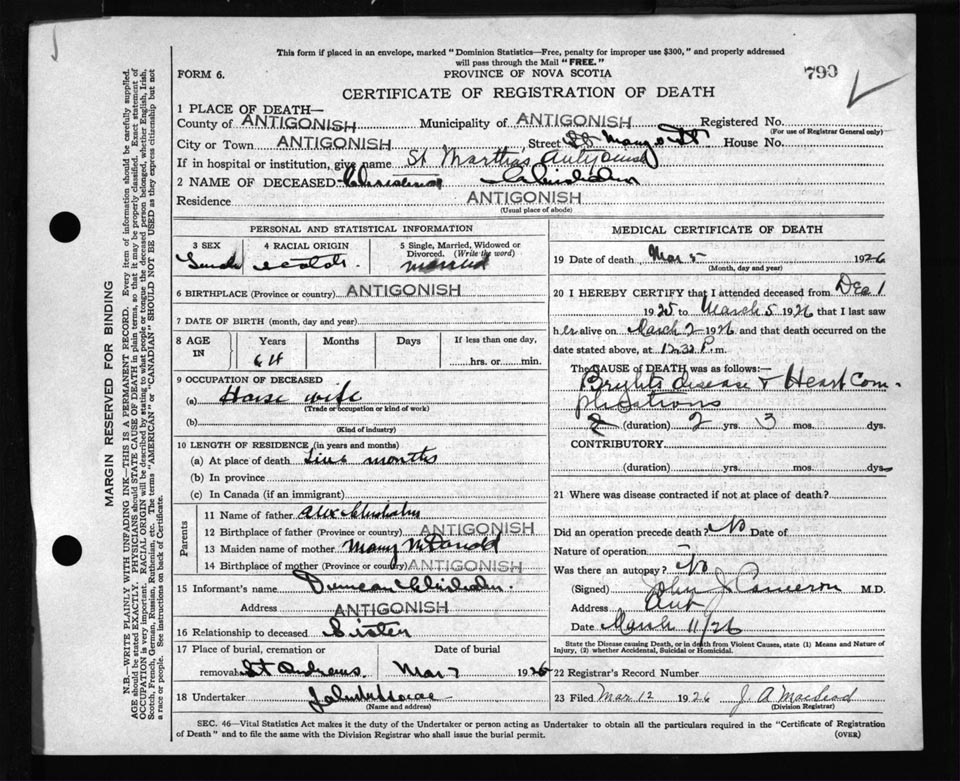 This form if placed in an envelope, marked "Dominion Statistics—Free, penalty for improper use $300," and properly addressed
will pass through the Mail "FREE."
FORM 6.
PROVINCE OF NOVA SCOTIA
799
CERTIFICATE OF REGISTRATION OF DEATH
1 PLACE OF DEATH—
County of ANTIGONISH Municipality of ANTIGONISH Registered No.
(For use of Registrar General only)
City or Town ANTIGONISH, Street St Marys St House No.
If in hospital or institution, give name St Marthas Antigonish
2 NAME OF DECEASED Chisholm
Residence ANTIGONISH
(Usual place of abode)
PERSONAL AND STATISTICAL INFORMATION
3 SEX
4 RACIAL ORIGIN
5 Single, Married, Widowed or Divorced. (Write the word)
Scotch married
6 BIRTHPLACE (Province or country) ANTIGONISH
7 DATE OF BIRTH (month, day and year)
8 AGE IN
Years Months Days If less than one day,
64
hrs. or min.
9 OCCUPATION OF DECEASED
(a) House wife
(Trade or occupation or kind of work)
(b)
(Kind of industry)
10 LENGTH OF RESIDENCE (in years and months)
(a) At place of death months
(b) In province
(c) In Canada (if an immigrant)
Parents
11 Name of father Alex Chisholm
12 Birthplace of father (Province or country) ANTIGONISH
13 Maiden name of mother Mary McDonald
14 Birthplace of mother (Province or country) ANTIGONISH
15 Informant's name Duncan Chisholm.
Address ANTIGONISH
16 Relationship to deceased Sister
17 Place of burial, cremation or Date of burial
removal St Andrews Mar 7 1926
18 Undertaker
(Name and address)
MEDICAL CERTIFICATE OF DEATH
19 Date of death Mar 5 1926
(Month, day and year)
20 I HEREBY CERTIFY that I attended deceased from Dec 1
1925 to March 5 1926 that I last saw
her alive on March 2 1926 and that death occurred on
date stated above, at 12.32 P.m.
The CAUSE OF DEATH was as follows:—
Brights disease & Heart Com-
plications
(duration) 2 yrs. 3 mos. dys.
CONTRIBUTORY
(duration) yrs. mos. dys
21 Where was disease contracted if not at place of death?
Did an operation precede death? No Date of
Nature of operation
Was there an autopsy? No
(Signed) John J Cameron M.D.
Address Ant
Date March 11/26
State the Disease causing Death, or in death from Violent Causes, state (1) Means and Nature of
Injury, (2) whether Accidental, Suicidal or Homicidal.
22 Registrar's Record Number
23 Filed Mar 12 1926 J. A Macleod
(Division Registrar)
SEC. 46—Vital Statistics Act makes it the duty of the Undertaker or person acting as Undertaker to obtain all the particulars required in the "Certificate of Registration
of Death" and to file the same with the Division Registrar who shall issue the burial permit.
(OVER)
MARGIN RESERVED FOR BINDING
N.B.—WRITE PLAINLY WITH UNFADING INK—THIS IS A PERMANENT RECORD. Every item of information should be carefully supplied.
AGE should be stated EXACTLY. PHYSICIANS should STATE CAUSE OF DEATH in plain terms, so that it may be properly classified. Exact statement of
OCCUPATION is very important. RACIAL ORIGIN will be described by stating to what people or tongue the deceased person belonged, whether English, Irish,
Scotch, French, German, Russian, Ruthenian, etc. The terms "AMERICAN" or "CANADIAN" SHOULD NOT BE USED as they express citizenship but not
a race or people. See instructions on back of Certificate.